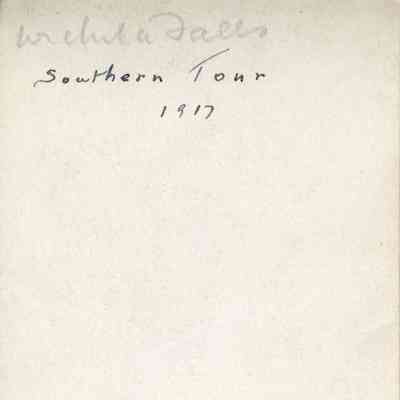 Falls
Southern Tour
1917